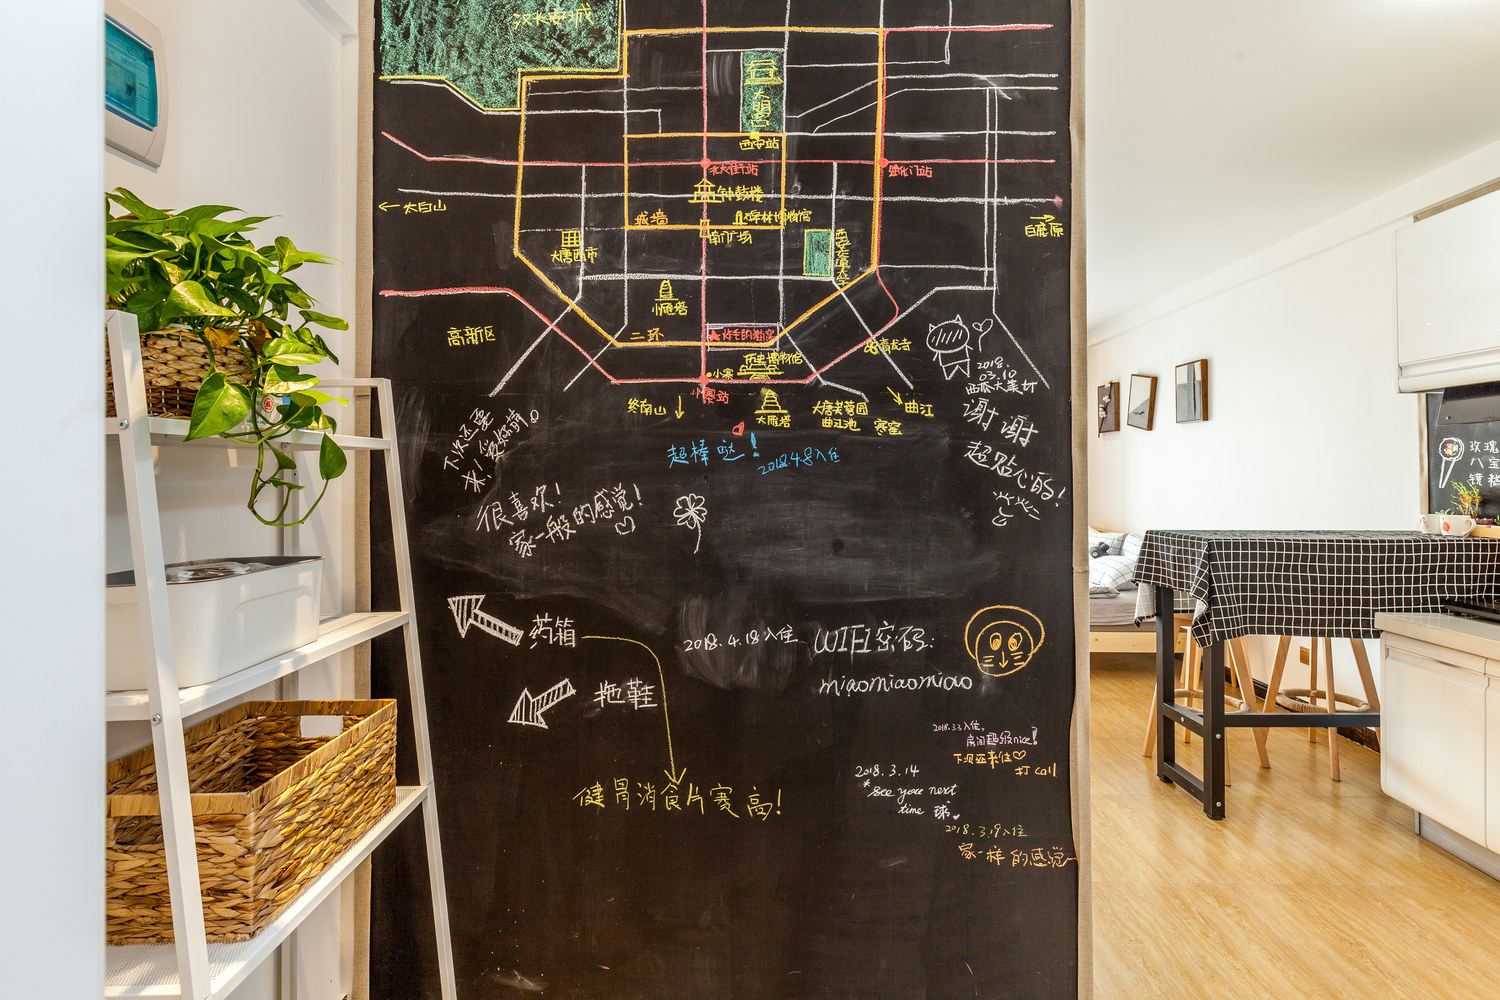 汉长安城
大明宫
西安站
北大街站
钟鼓楼
← 太白山
城墙
碑林博物馆
南门广场
白鹿原
大唐西市
西安交通大学
小雁塔
高新区
二环
炸毛的猫窝
青龙寺
历史博物馆
小寨
小寨站
2018.
03.10
西瓜大美女
终南山 ↓
大雁塔
大唐芙蓉园
曲江池 寒窑
曲江
下次还要
来！爱你萌。
超棒哒！
2018.4.8入住
谢谢
超贴心的！
很喜欢！
家一般的感觉！
药箱
2018.4.18入住
WIFI密码:
miaomiaomiao
拖鞋
2018.3.3入住,
房间超级nice！
下次还来住♡
打call
2018.3.14
*See you next
time 球
健胃消食片赛高！
2018.3.19入住
家一样的感觉~
玫瑰
八宝
镜糕